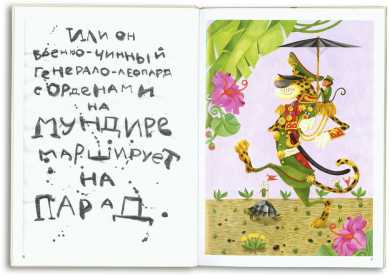 ИЛИ ОН
ВОЕННО-ЧИННЫЙ
ГЕНЕРАЛО-ЛЕОПАРД
С ОРДЕНАМИ
НА
МУНДИРЕ
МАРШИРУЕТ
НА
ПАРАД.
6
7